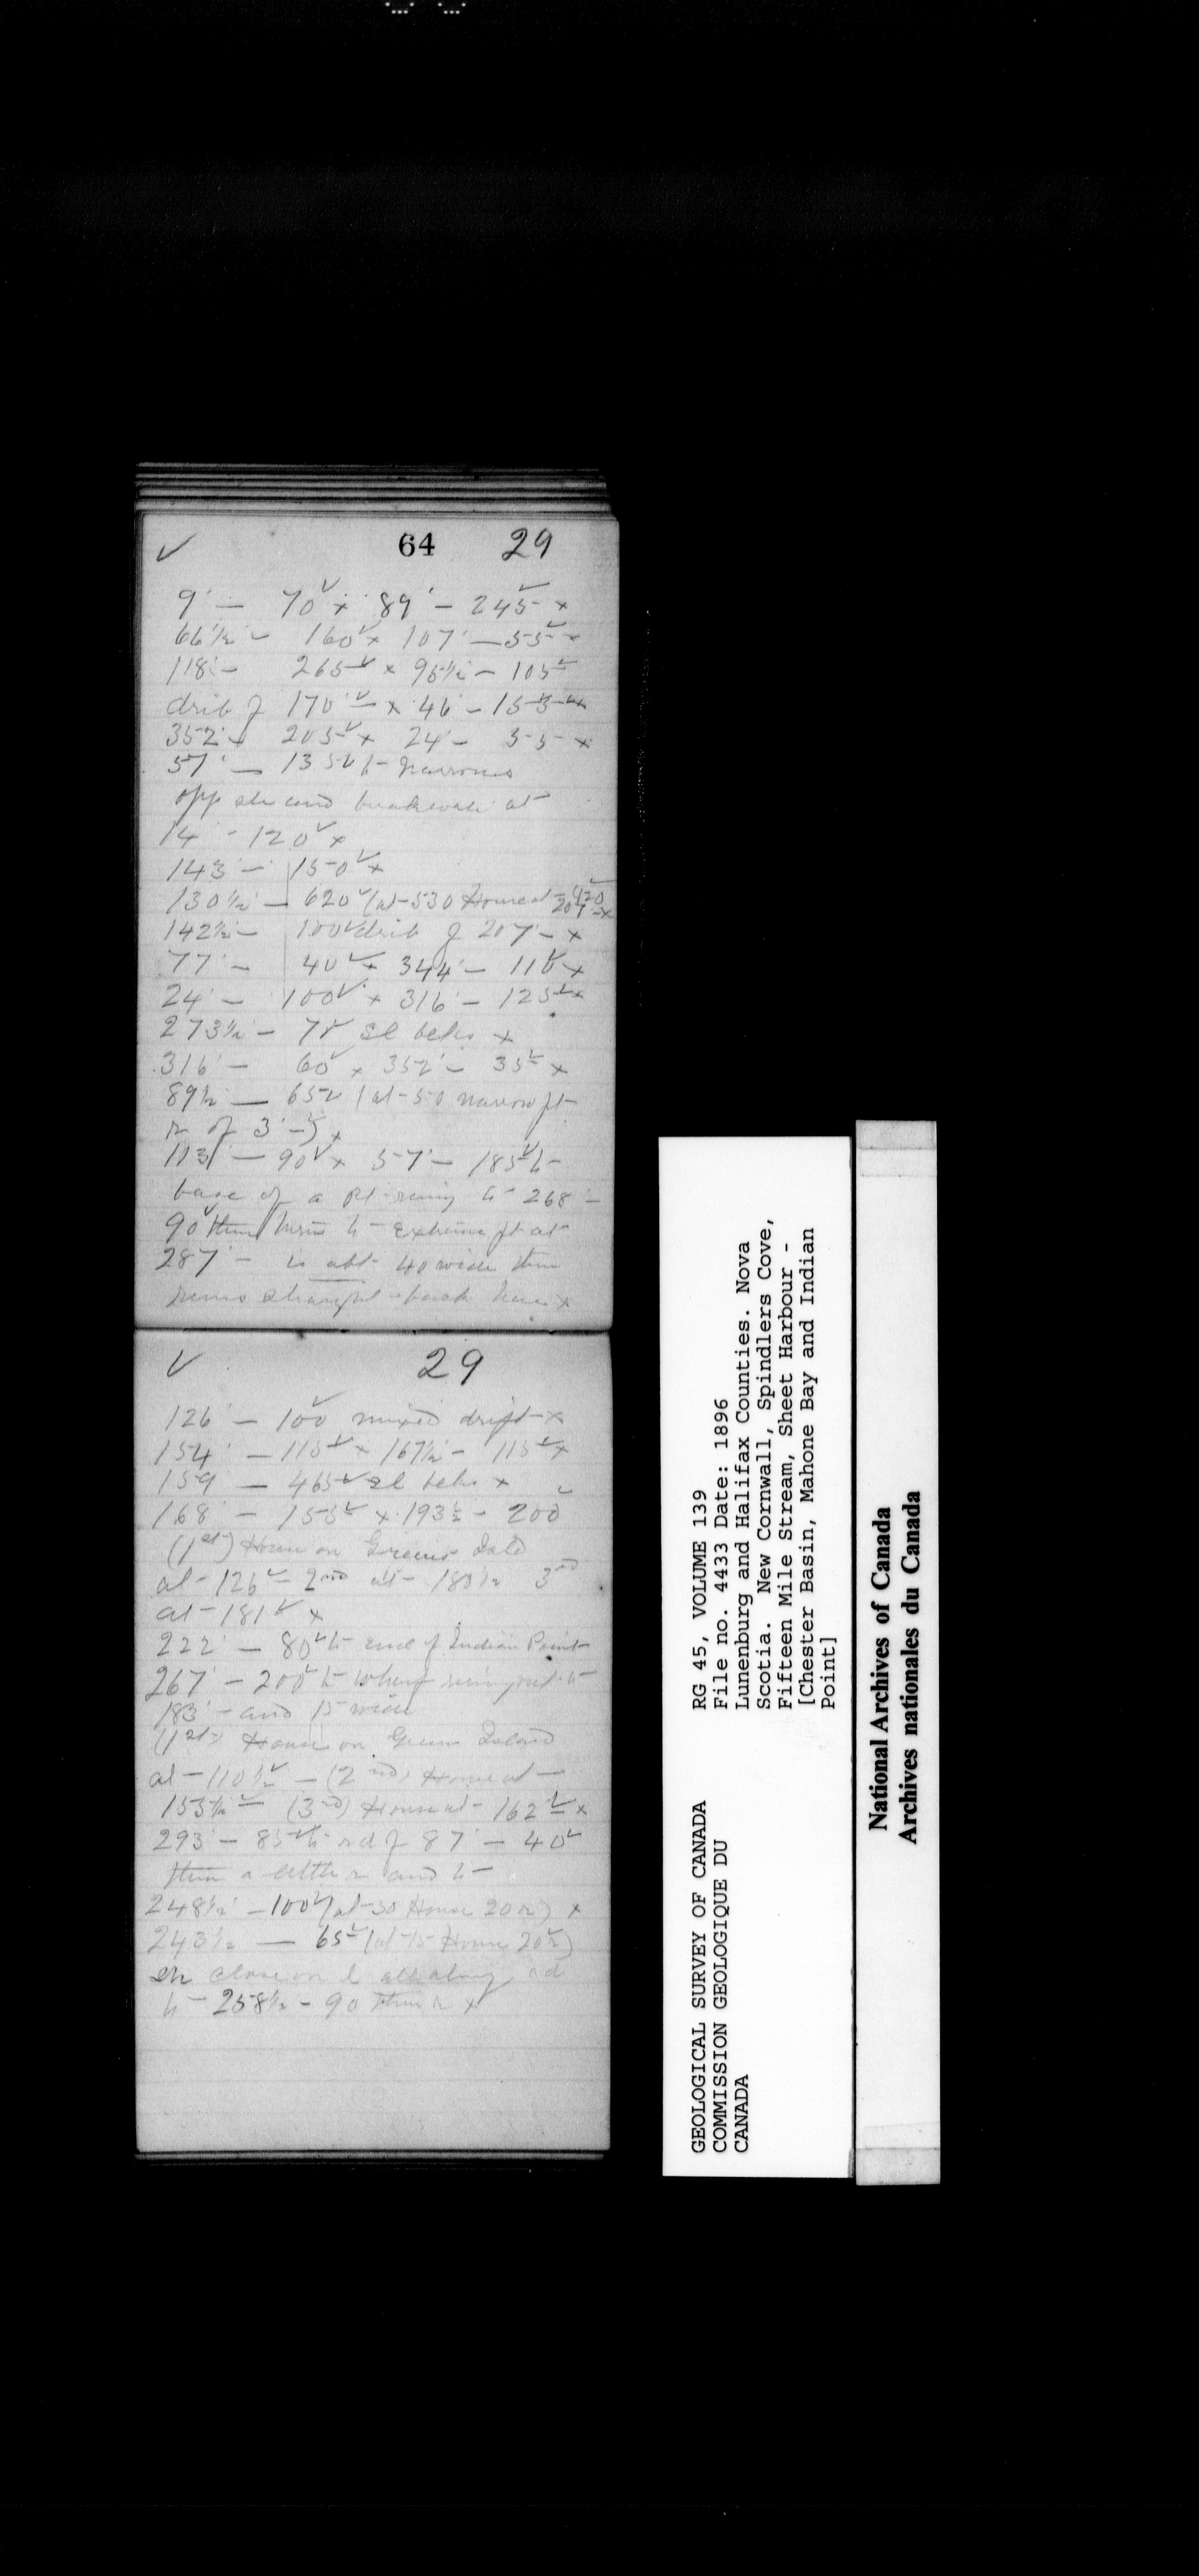 ✓ 64 29
9' — 70 ✓ x 89' — 245 ✓ x
66½' — 160 ✓ x 107' — 55 ✓ x
118' — 265 ✓ x 95½' — 105 ✓
170' ✓ x 46' — 155 ✓ x
352' — 205 ✓ x 24' — 55 x
57' — 135 ✓ narrows
opp and at
14' — 120 ✓ x
143' — 150 ✓ x
130½' — 620 ✓ (at 530 House at 420
207' x
142½' — 100 ✓ of 207' — x
77' — 40 ✓ x 344' — 110 ✓ x
24' — 100 ✓ x 316' — 125 ✓ x
273½' — 70 ✓ sl belts x
316' — 60 ✓ x 352' — 35 ✓ x
89½ — 65 ✓ (at 50 narrow pt
r of 3' —) x
113' — 90 ✓ x 57' — 185 ✓ to
base of a pt to 268' —
90 ✓ then turns to extreme pt at
287' — is abt 40 wide then
runs straight back here x
✓ 29
126' — 100 ✓ mixed drift x
154' — 115 ✓ x 167½' — 115 ✓ x
159' — 465 ✓ sl belts x
168' — 155 ✓ x 193½ — 200 ✓
(1st) House on
at 126 ✓ 2nd at 180½ 3rd
at 181 ✓ x
222' — 80 ✓ to end of Indian Point
267' — 200 ✓ to wharf out to
183' — and 15 wide
(1st) House on Island
at 110½ ✓ — (2nd) House at
153½ ✓ (3rd) House at 162 ✓ x
293 — 85 ✓ to rd of 87' — 40 ✓
then a little r and to
248½' — 100 ✓ (at 30 House 20 r) x
243½ — 65 ✓ (at 15 House 20 r)
close on l all along rd
to 258½ — 90 then r x
RG 45, VOLUME 139
File no. 4433 Date: 1896
Lunenburg and Halifax Counties. Nova
Scotia. New Cornwall, Spindlers Cove,
Fifteen Mile Stream, Sheet Harbour -
[Chester Basin, Mahone Bay and Indian
Point]
GEOLOGICAL SURVEY OF CANADA
COMMISSION GEOLOGIQUE DU
CANADA
National Archives of Canada
Archives nationales du Canada